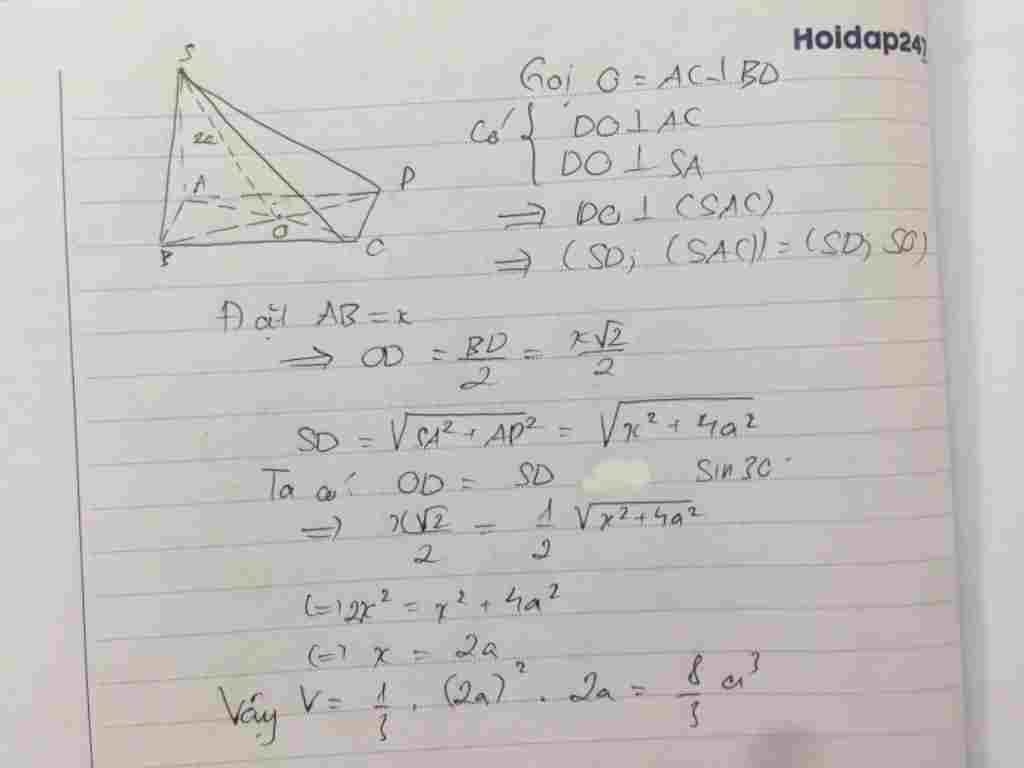 Hoidap247
S
2a
A
D
O
B
C
Gọi O = AC ⊥ BD
Có { DO ⊥ AC
DO ⊥ SA
⇒ DO ⊥ (SAC)
⇒ (SD; (SAC)) = (SD; SO)
Đặt AB = x
⇒ OD = BD/2 = x√2/2
SD = √(SA² + AD²) = √(x² + 4a²)
Ta có: OD = SD sin 30°
⇒ x√2/2 = 1/2 √(x² + 4a²)
(=) 2x² = x² + 4a²
(=) x = 2a
Vậy V = 1/3 . (2a)² . 2a = 8/3 a³